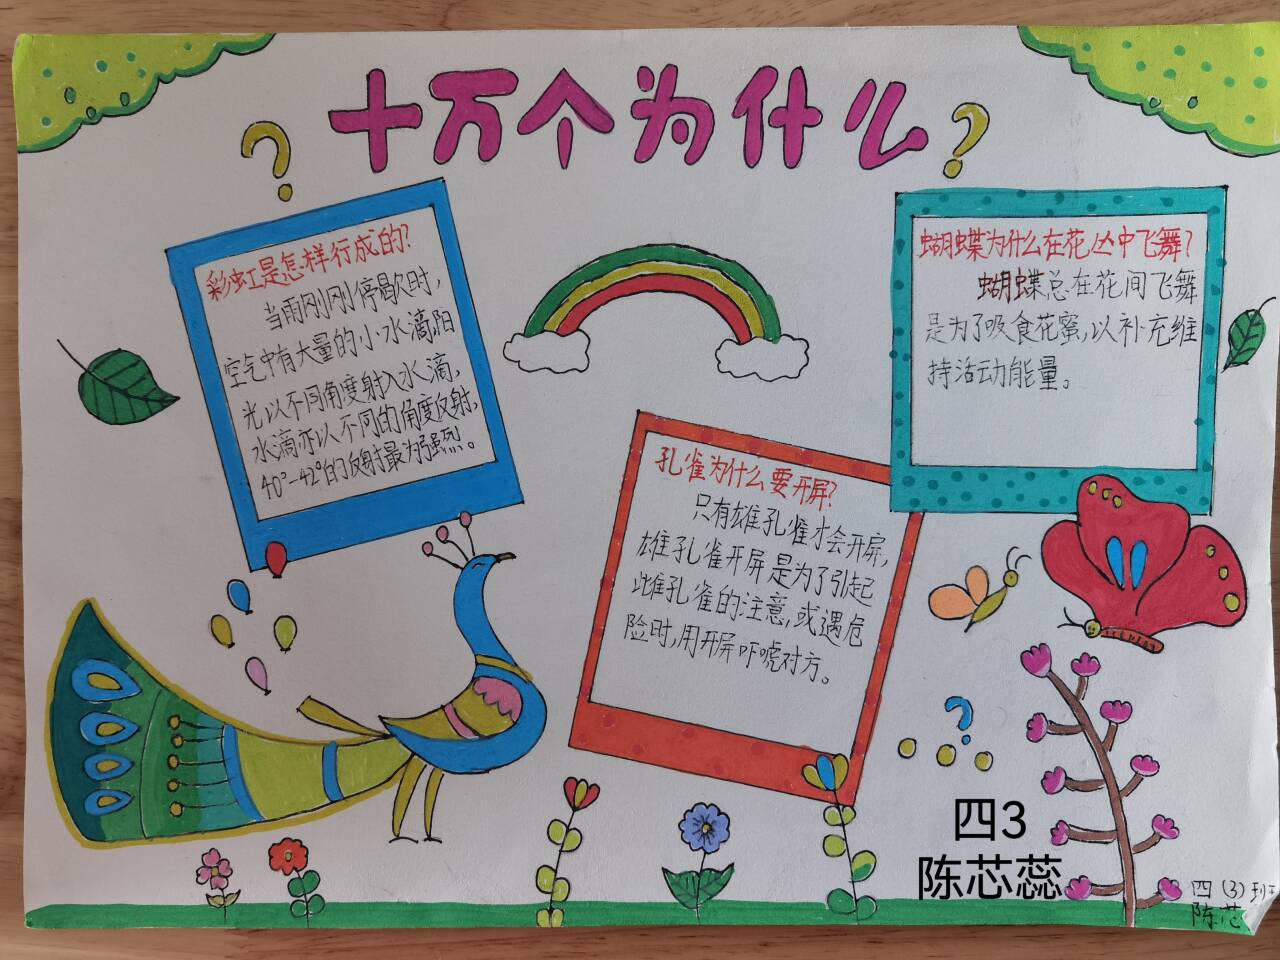 十万个为什么
彩虹是怎样行成的?
当雨刚刚停歇时,
空气中有大量的小水滴阳
光以不同角度射入水滴,
水滴亦以不同的角度反射,
40°-42°的反射最为强烈。
孔雀为什么要开屏?
只有雄孔雀才会开屏,
雄孔雀开屏是为了引起
雌孔雀的注意,或遇危
险时,用开屏吓唬对方。
蝴蝶为什么在花丛中飞舞?
蝴蝶总在花间飞舞
是为了吸食花蜜,以补充维
持活动能量。
四3
陈芯蕊
四(3)班
陈芯